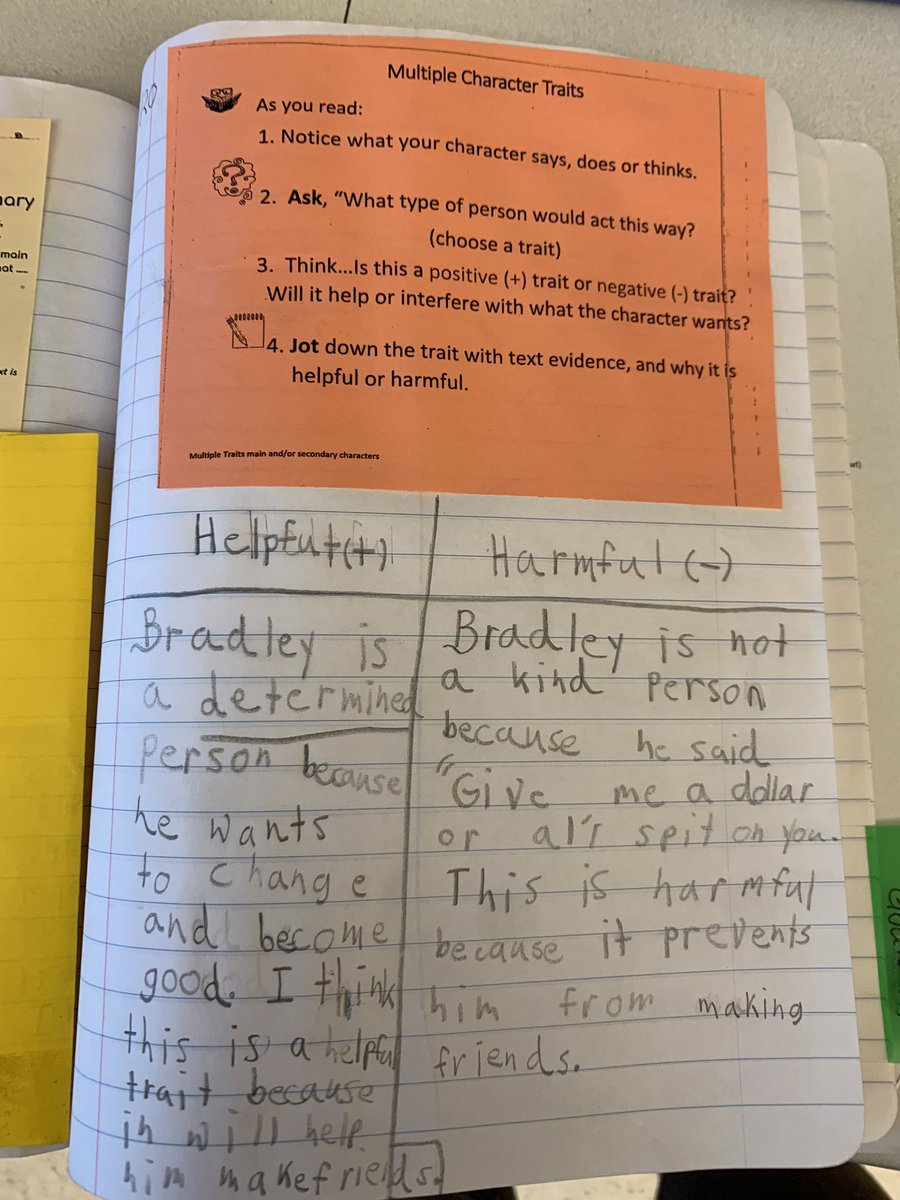 20
ary
main
at .....
xt is
Multiple Character Traits
As you read:
1. Notice what your character says, does or thinks.
2. Ask, “What type of person would act this way?
(choose a trait)
3. Think...Is this a positive (+) trait or negative (-) trait?
Will it help or interfere with what the character wants?
4. Jot down the trait with text evidence, and why it is
helpful or harmful.
Multiple Traits main and/or secondary characters
wt)
Helpful (+)
Bradley is
a determined
person because
he wants
to change
and become
good. I think
this is a helpful
trait because
in will help
him make frieids.
Harmful (-)
Bradley is not
a kind Person
because he said
"Give me a dollar
or al'r spit on you.
This is harmful
because it prevents
him from making
friends.